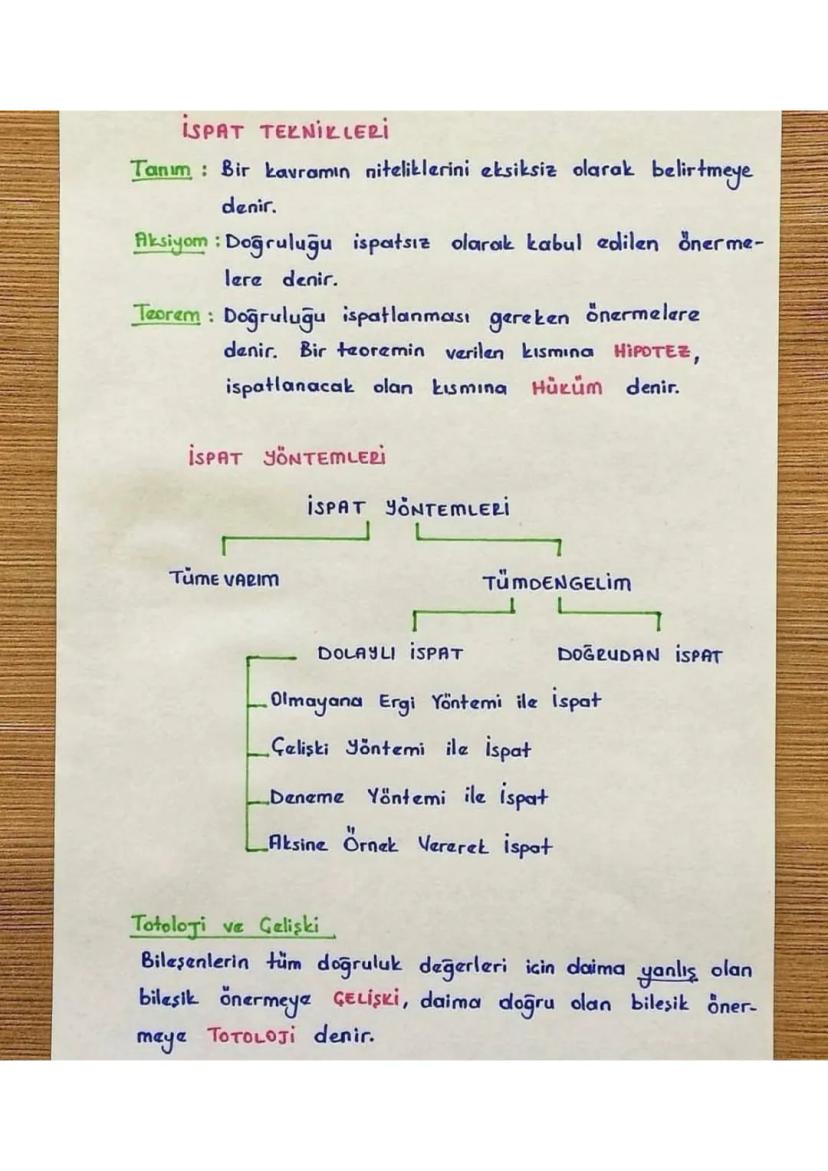 İSPAT TEKNİKLERİ
Tanım : Bir kavramın niteliklerini eksiksiz olarak belirtmeye
denir.
Aksiyom : Doğruluğu ispatsız olarak kabul edilen önerme-
lere denir.
Teorem : Doğruluğu ispatlanması gereken önermelere
denir. Bir teoremin verilen kısmına HİPOTEZ,
ispatlanacak olan kısmına HÜKÜM denir.
İSPAT YÖNTEMLERİ
İSPAT YÖNTEMLERİ
TÜMEVARIM TÜMDENGELİM
DOLAYLI İSPAT DOĞRUDAN İSPAT
Olmayana Ergi Yöntemi ile İspat
Çelişki Yöntemi ile İspat
Deneme Yöntemi ile İspat
Aksine Örnek Vererek İspat
Totoloji ve Çelişki
Bileşenlerin tüm doğruluk değerleri için daima yanlış olan
bileşik önermeye ÇELİŞKİ, daima doğru olan bileşik öner-
meye TOTOLOJİ denir.